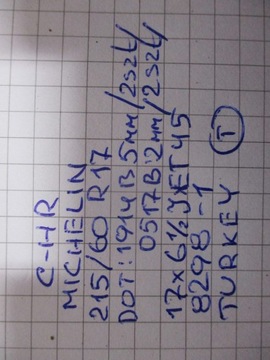 C-HR
MICHELIN
215/60 R17
DOT: 1914B 5mm/2szt/
0517B 2mm/2szt/
17x6½JxET45
8298-1
TURKEY T